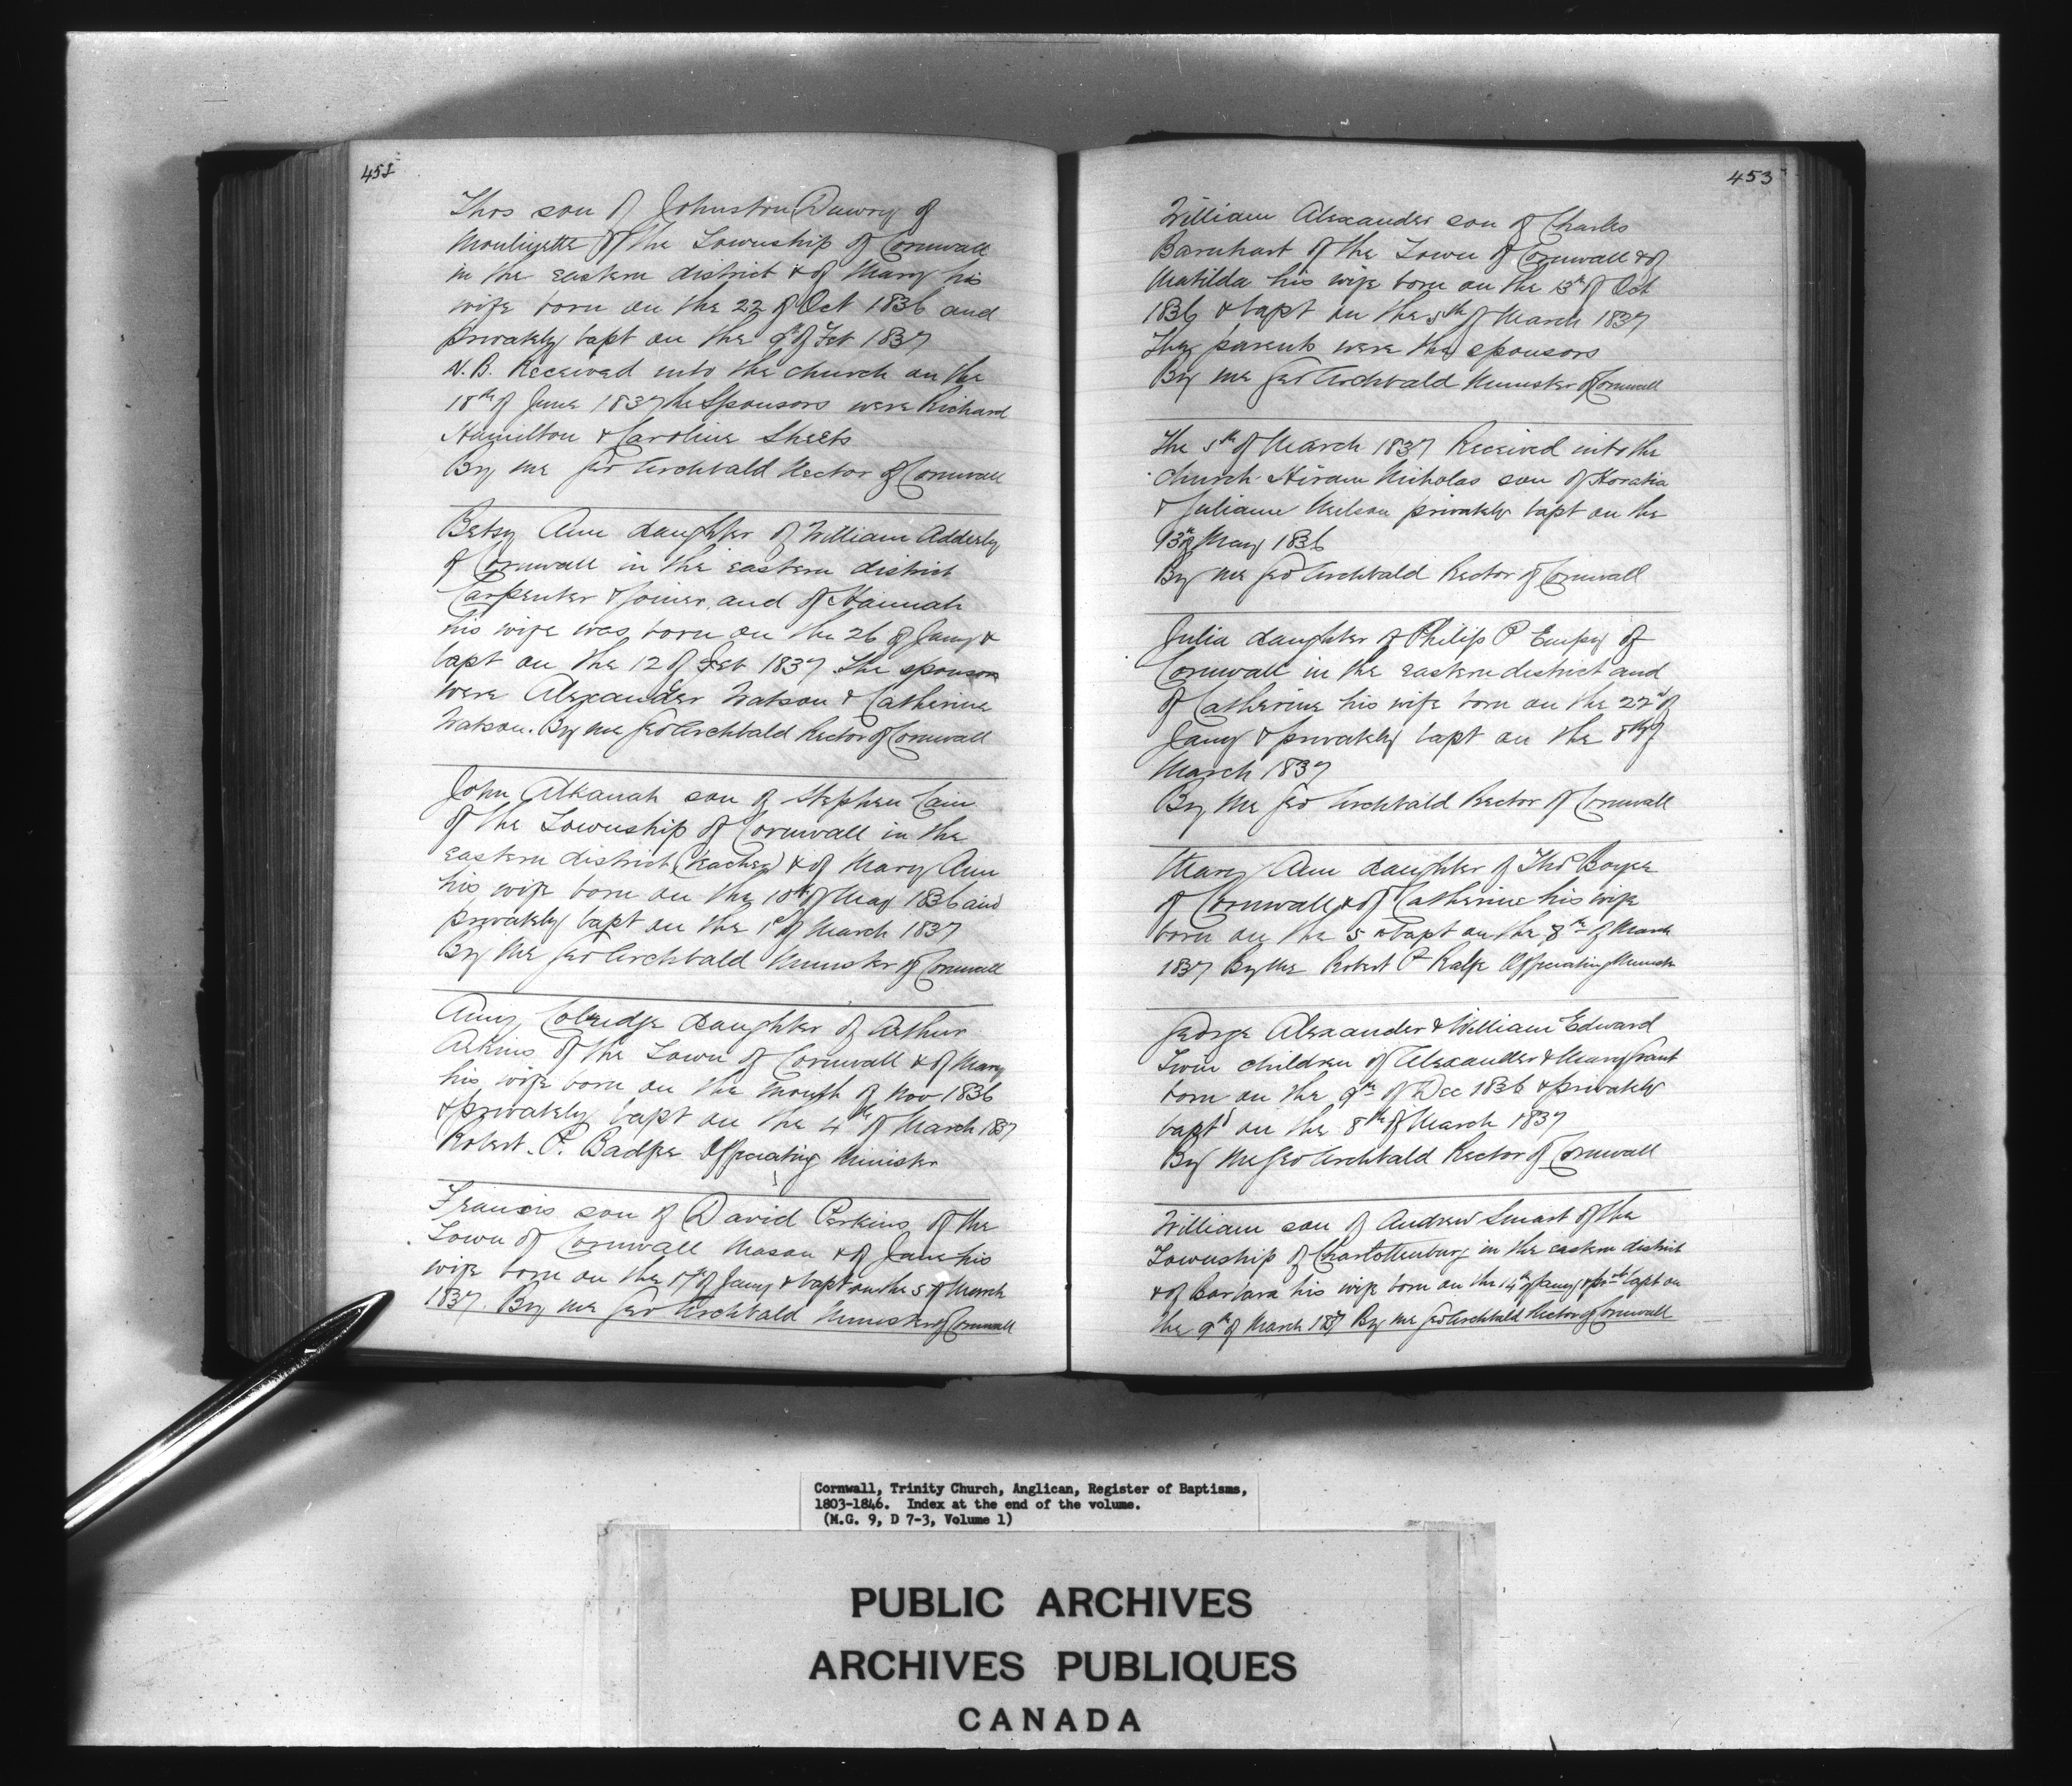 452
Thos son of Johnston Dewry of
Moulinette of the Township of Cornwall
in the eastern district & of Mary his
wife born on the 22 of Oct 1836 and
privately bapt on the 9th of Feb 1837
N.B. Received into the church on the
18th of June 1837 the Sponsors were Richard
Hamilton & Caroline Sheets
By me Geo Archbald Rector of Cornwall
Betsy Ann daughter of William Adderly
of Cornwall in the eastern district
Carpenter & Joiner, and of Hannah
his wife was born on the 26 of Jany &
bapt on the 12 of Feb 1837 The sponsors
were Alexander Watson & Catherine
Watson. By me Geo Archbald Rector of Cornwall
John Alkanah son of Stephen Cain
of the Township of Cornwall in the
eastern district (teacher) & of Mary Ann
his wife born on the 10th of May 1836 and
privately bapt on the 1st of March 1837
By me Geo Archbald Minister of Cornwall
Anny Colredge daughter of Arthur
Atkins of the Town of Cornwall & of Mary
his wife born on the month of Nov 1836
& privately bapt on the 4th of March 1837
Robert. P. Badge Officiating Minister
Francis son of David Perkins of the
Town of Cornwall Mason & of Jane his
wife born on the 17th of Jany & bapt on the 5 of March
1837. By me Geo Archbald Minister of Cornwall
453
William Alexander son of Charles
Barnhart of the Town of Cornwall & of
Matilda his wife born on the 13th of Oct
1836 & bapt on the 5th of March 1837
They parents were the sponsors
By me Geo Archbald Minister of Cornwall
The 5th of March 1837 Received into the
church Hiram Nicholas son of Horatia
& Juliann Neilson privately bapt on the
13th of May 1836
By me Geo Archbald Rector of Cornwall
Julia daughter of Philip P Empey of
Cornwall in the eastern district and
of Catherine his wife born on the 22d of
Jany & privately bapt on the 8th of
March 1837
By me Geo Archbald Rector of Cornwall
Mary Ann daughter of Thos Boyce
of Cornwall & of Catherine his wife
born on the 5 & bapt on the 8th of March
1837 By me Robert P Ralfe Officiating Minister
George Alexander & William Edward
Twin children of Alexander & Mary Grant
born on the 9th of Dec 1836 & privately
bapt'd on the 8th of March 1837
By me Geo Archbald Rector of Cornwall
William son of Andrew Smart of the
Township of Charlottenburg in the eastern district
& of Barbara his wife born on the 14th of Jany & privtly bapt on
the 9th of March 1837 By me Geo Archbald Rector of Cornwall
Cornwall, Trinity Church, Anglican, Register of Baptisms,
1803-1846. Index at the end of the volume.
(M.G. 9, D 7-3, Volume 1)
PUBLIC ARCHIVES
ARCHIVES PUBLIQUES
CANADA